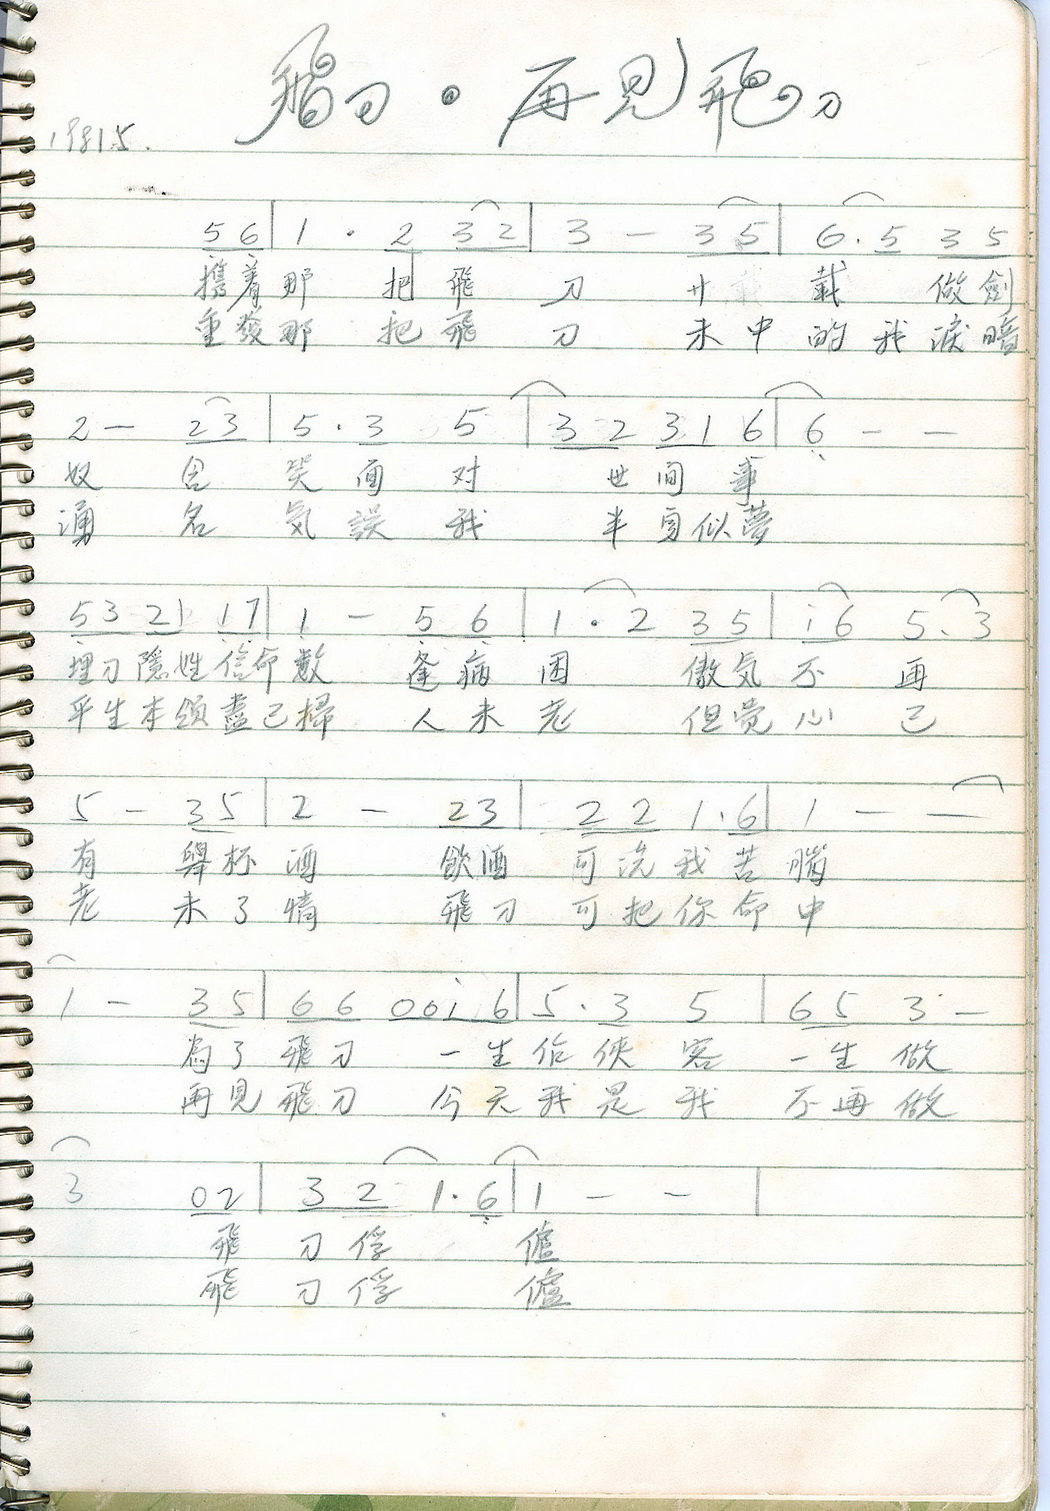 飛刀·再見飛刀
1981.5.
5 6 | 1 · 2 3 2 | 3 — 3 5 | 6 · 5 3 5
攜着那 把飛 刀 廿 載 做劍
重發那 把飛 刀 未中的我淚暗
2 — 2 3 | 5 · 3 5 | 3 2 3 1 6 | 6 — —
奴 含 笑面 对 世間 事
湧 名 気誤 我 半身似夢
5 3 2 1 1 7 | 1 — 5 6 | 1 · 2 3 5 | i 6 5 · 3
埋刀隱姓信命數 逢病困 傲気不 再
平生本領盡已掃 人未老 但覺心 已
5 — 3 5 | 2 — 2 3 | 2 2 1 · 6 | 1 — —
有 舉杯酒 飲酒 可洗我苦惱
老 未了情 飛刀 可把你命中
1 — 3 5 | 6 6 0 0 i 6 | 5 · 3 5 | 6 5 3 —
為了飛刀 一生作俠客 一生做
再見飛刀 今天我是我 不再做
3 0 2 | 3 2 1 · 6 | 1 — — |
飛 刀俘 虜
飛 刀俘 虜